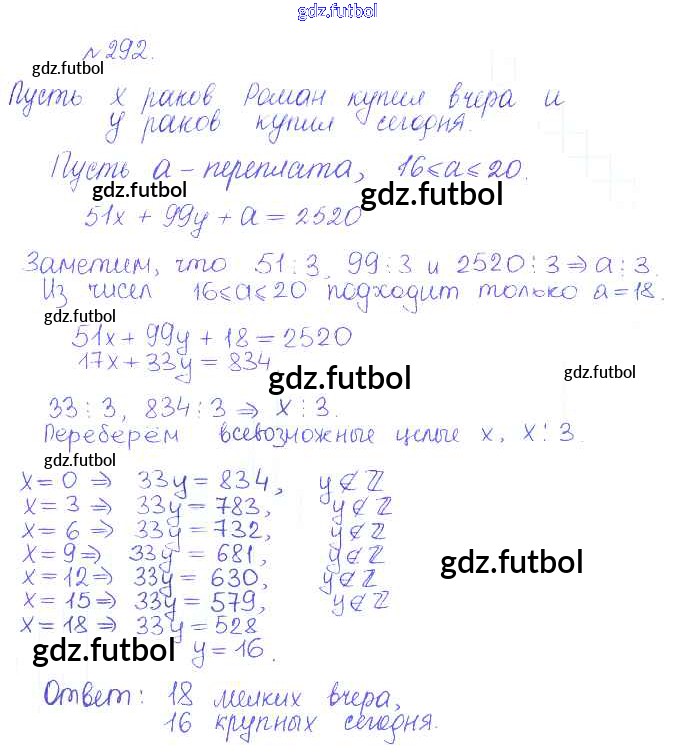 gdz.futbol
№ 292.
gdz.futbol
Пусть x раков Роман купил вчера и
y раков купил сегодня.
Пусть a - переплата, 16 ⩽ a ⩽ 20.
gdz.futbol gdz.futbol
51x + 99y + a = 2520
Заметим, что 51 ⋮ 3, 99 ⋮ 3 и 2520 ⋮ 3 ⇒ a ⋮ 3.
Из чисел 16 ⩽ a ⩽ 20 подходит только a = 18.
gdz.futbol
51x + 99y + 18 = 2520
17x + 33y = 834
gdz.futbol gdz.futbol
33 ⋮ 3, 834 ⋮ 3 ⇒ x ⋮ 3.
Переберём всевозможные целые x, x ⋮ 3.
gdz.futbol
x = 0 ⇒ 33y = 834, y ∉ ℤ
x = 3 ⇒ 33y = 783, y ∉ ℤ
x = 6 ⇒ 33y = 732, y ∉ ℤ
x = 9 ⇒ 33y = 681, y ∉ ℤ
gdz.futbol
x = 12 ⇒ 33y = 630, y ∉ ℤ
x = 15 ⇒ 33y = 579, y ∉ ℤ
x = 18 ⇒ 33y = 528
gdz.futbol
y = 16.
Ответ: 18 мелких вчера,
16 крупных сегодня.